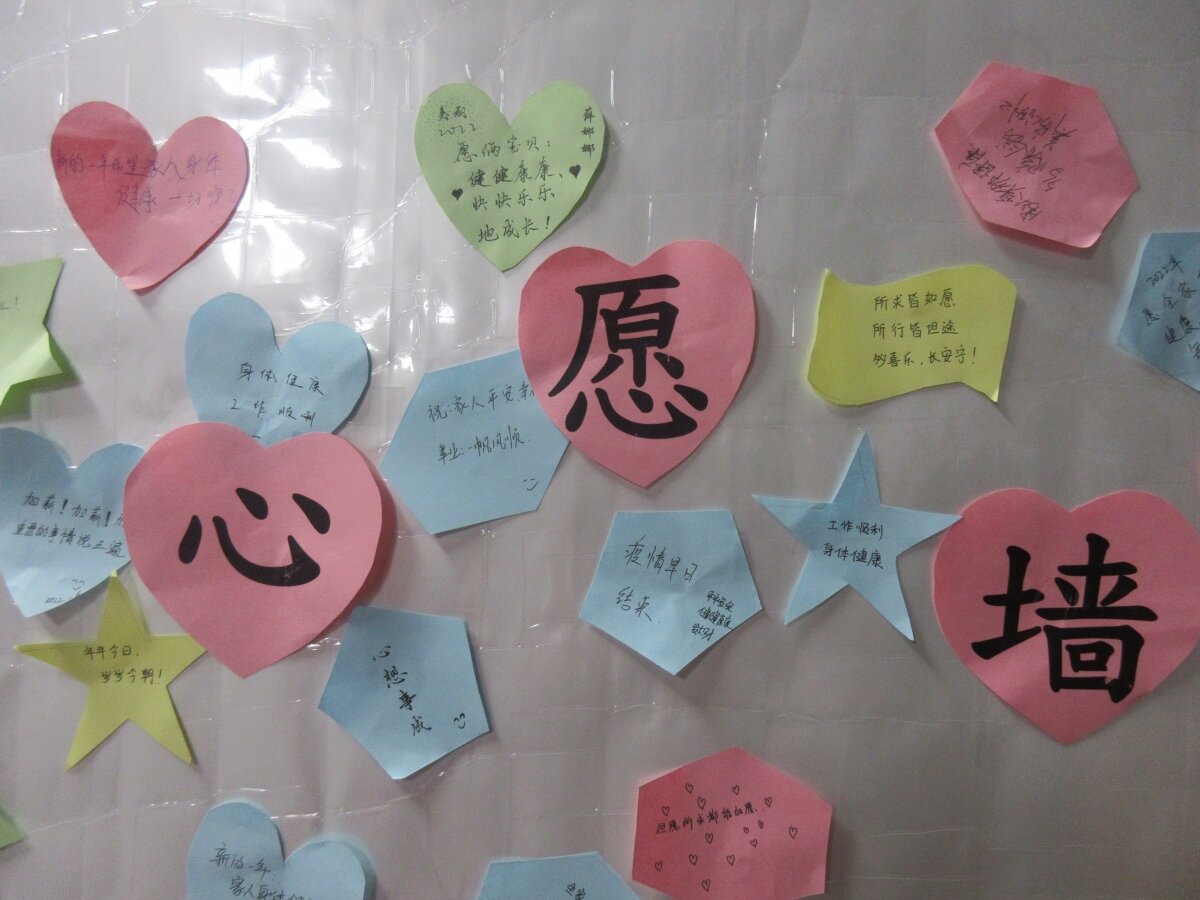 心
愿
墙
新的一年希望家人身体
健康一切顺
2022
薛娜娜
愿俩宝贝：
健健康康、
快快乐乐
地成长！
所求皆如愿
所行皆坦途
多喜乐，长安宁！
2022年
愿全家
健康
身体健康
工作顺利
祝：家人平安幸
事业：一帆风顺.
加薪！加薪！加
重要的事情说三遍
工作顺利
身体健康
疫情早日
结束.
年年今日，
岁岁今朝！
心想事成
但愿所求都能如愿.
新的一年：
家人身体健